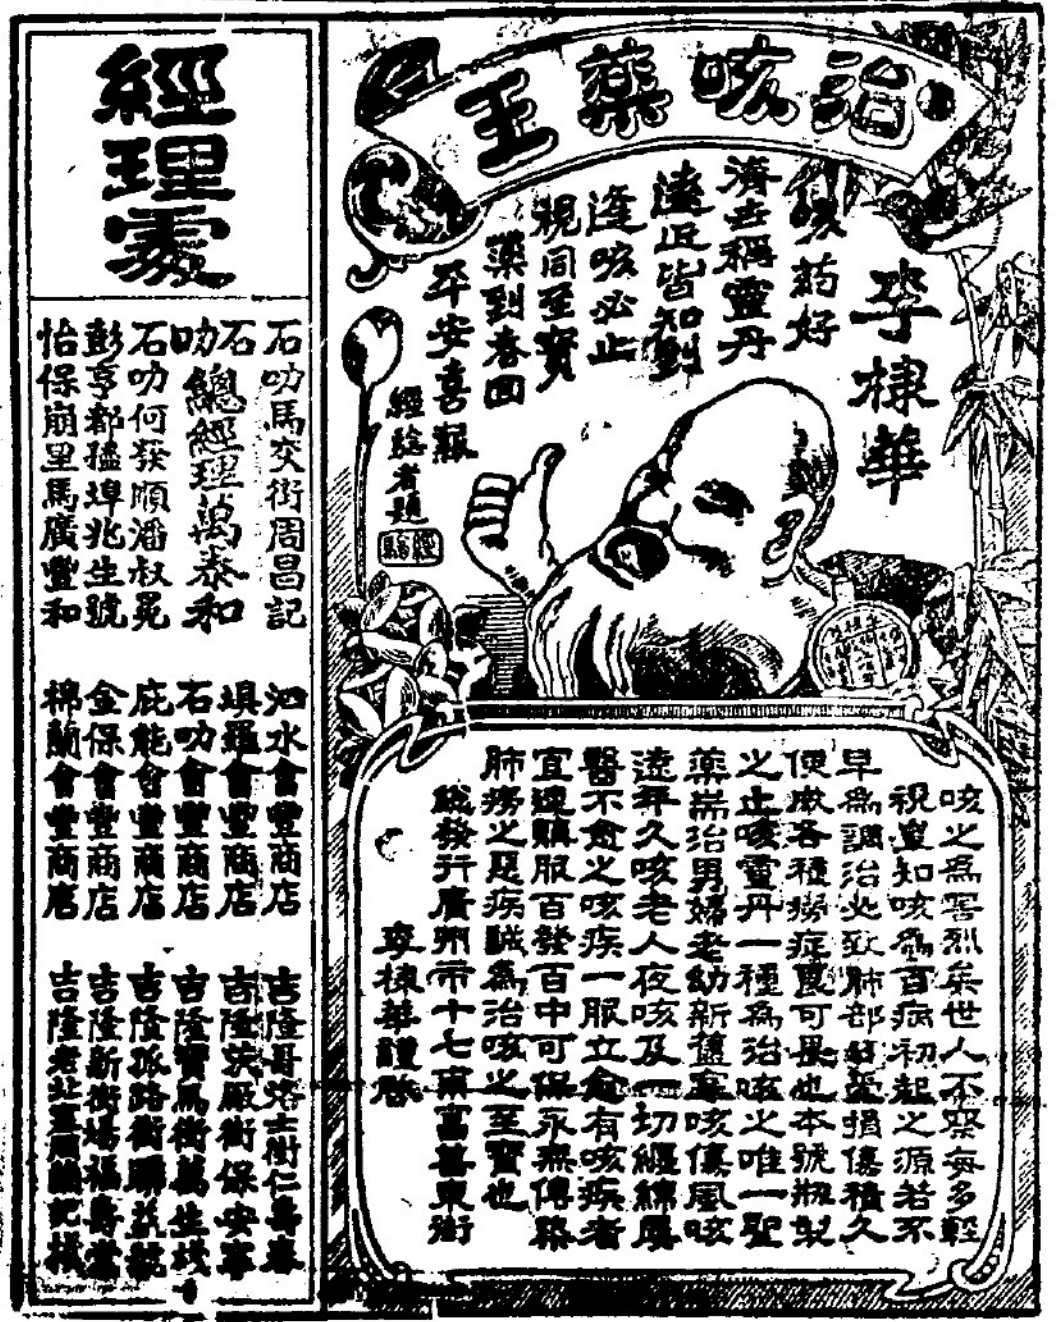 治咳藥王
李棣華
咳药好
濟世稱靈丹
遠近皆知到
逢咳必止
視同至寶
藥到春回
平安喜報
經驗者題
經驗
咳之為害烈矣世人不察每多輕
視豈知咳為百病初起之源若不
早為調治必致肺部損傷積久
便成各種癆症良可畏也本號秘製
之止咳靈丹一種為治咳之唯一聖
藥耑治男婦老幼新舊寒咳傷風咳
遠年久咳老人夜咳及一切纏綿屢
醫不愈之咳疾一服立愈有咳疾者
宜速購服百發百中可保永無傳染
肺癆之惡疾誠為治咳之至寶也
總發行廣州市十七甫富善東街
李棣華謹啟
經理處
石叻馬交街周昌記
石叻總經理萬泰和
石叻何發順潘叔冕
彭亨都㙟埠兆生號
怡保崩里馬廣豐和
泗水會豐商店
埧羅會豐商店
石叻會豐商店
庇能會豐商店
金保會豐商店
棉蘭會豐商店
吉隆哥洛士街仁壽春
吉隆茨廠街保安寧
吉隆寶馬街萬生棧
吉隆孤路街聯益號
吉隆新街場福壽堂
吉隆老